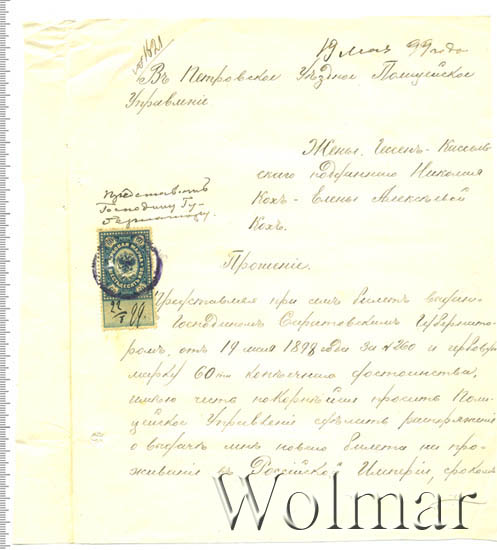 № 1621
19 мая 99 года
Въ Петровское Уѣздное Полицейское
Управленіе
Жены, Гессен-Кассель
скаго подданнаго Николая
Кохъ - Елены Алексѣевой
Кохъ.
Представить
Господину Гу-
бернатору.
Прошеніе.
Представляя при семъ билетъ выдан
Господиномъ Саратовскимъ Губернато-
ромъ, отъ 19 мая 1898 года за № 260 и гербовую
марку 60ти копѣечнаго достоинства,
имѣю честь покорнѣйше просить Поли-
цейское Управленіе сдѣлать распоряженіе
о выдачѣ мнѣ новаго билета на про-
живаніе въ Россійской Имперіи, срокомъ
22/V 99
Wolmar